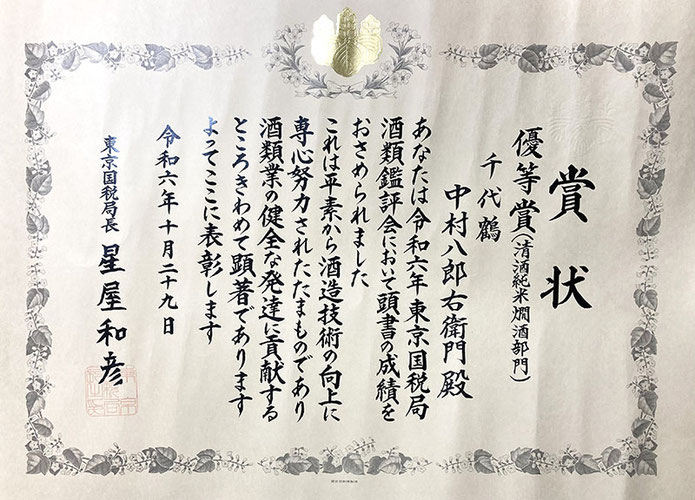 賞状
優等賞(清酒純米燗酒部門)
千代鶴
中村八郎右衛門殿
あなたは令和六年東京国税局
酒類鑑評会において頭書の成績を
おさめられました
これは平素から酒造技術の向上に
専心努力されたたまものであり
酒類業の健全な発達に貢献する
ところきわめて顕著であります
よってここに表彰します
令和六年十月二十九日
東京国税局長 星屋和彦